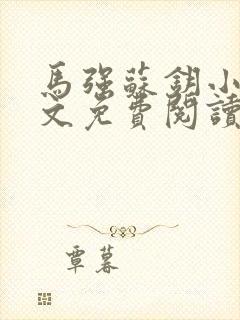 馬強蘇鈅小
文免費閱讀
覃暮